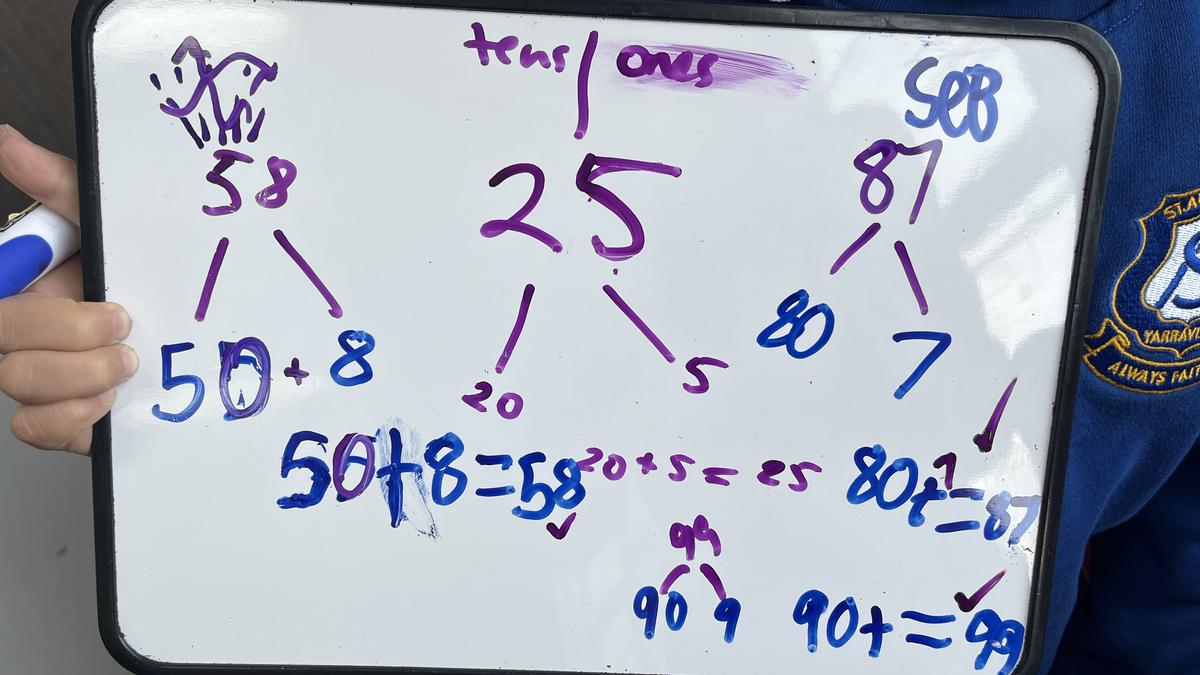 tens / ones
SeB
58
25
87
50 + 8
20
5
80
7
50+8=58
20+5=25
80+7=87
99
90 9
90+=99
ST.A
YARRAVI
ALWAYS FAIT